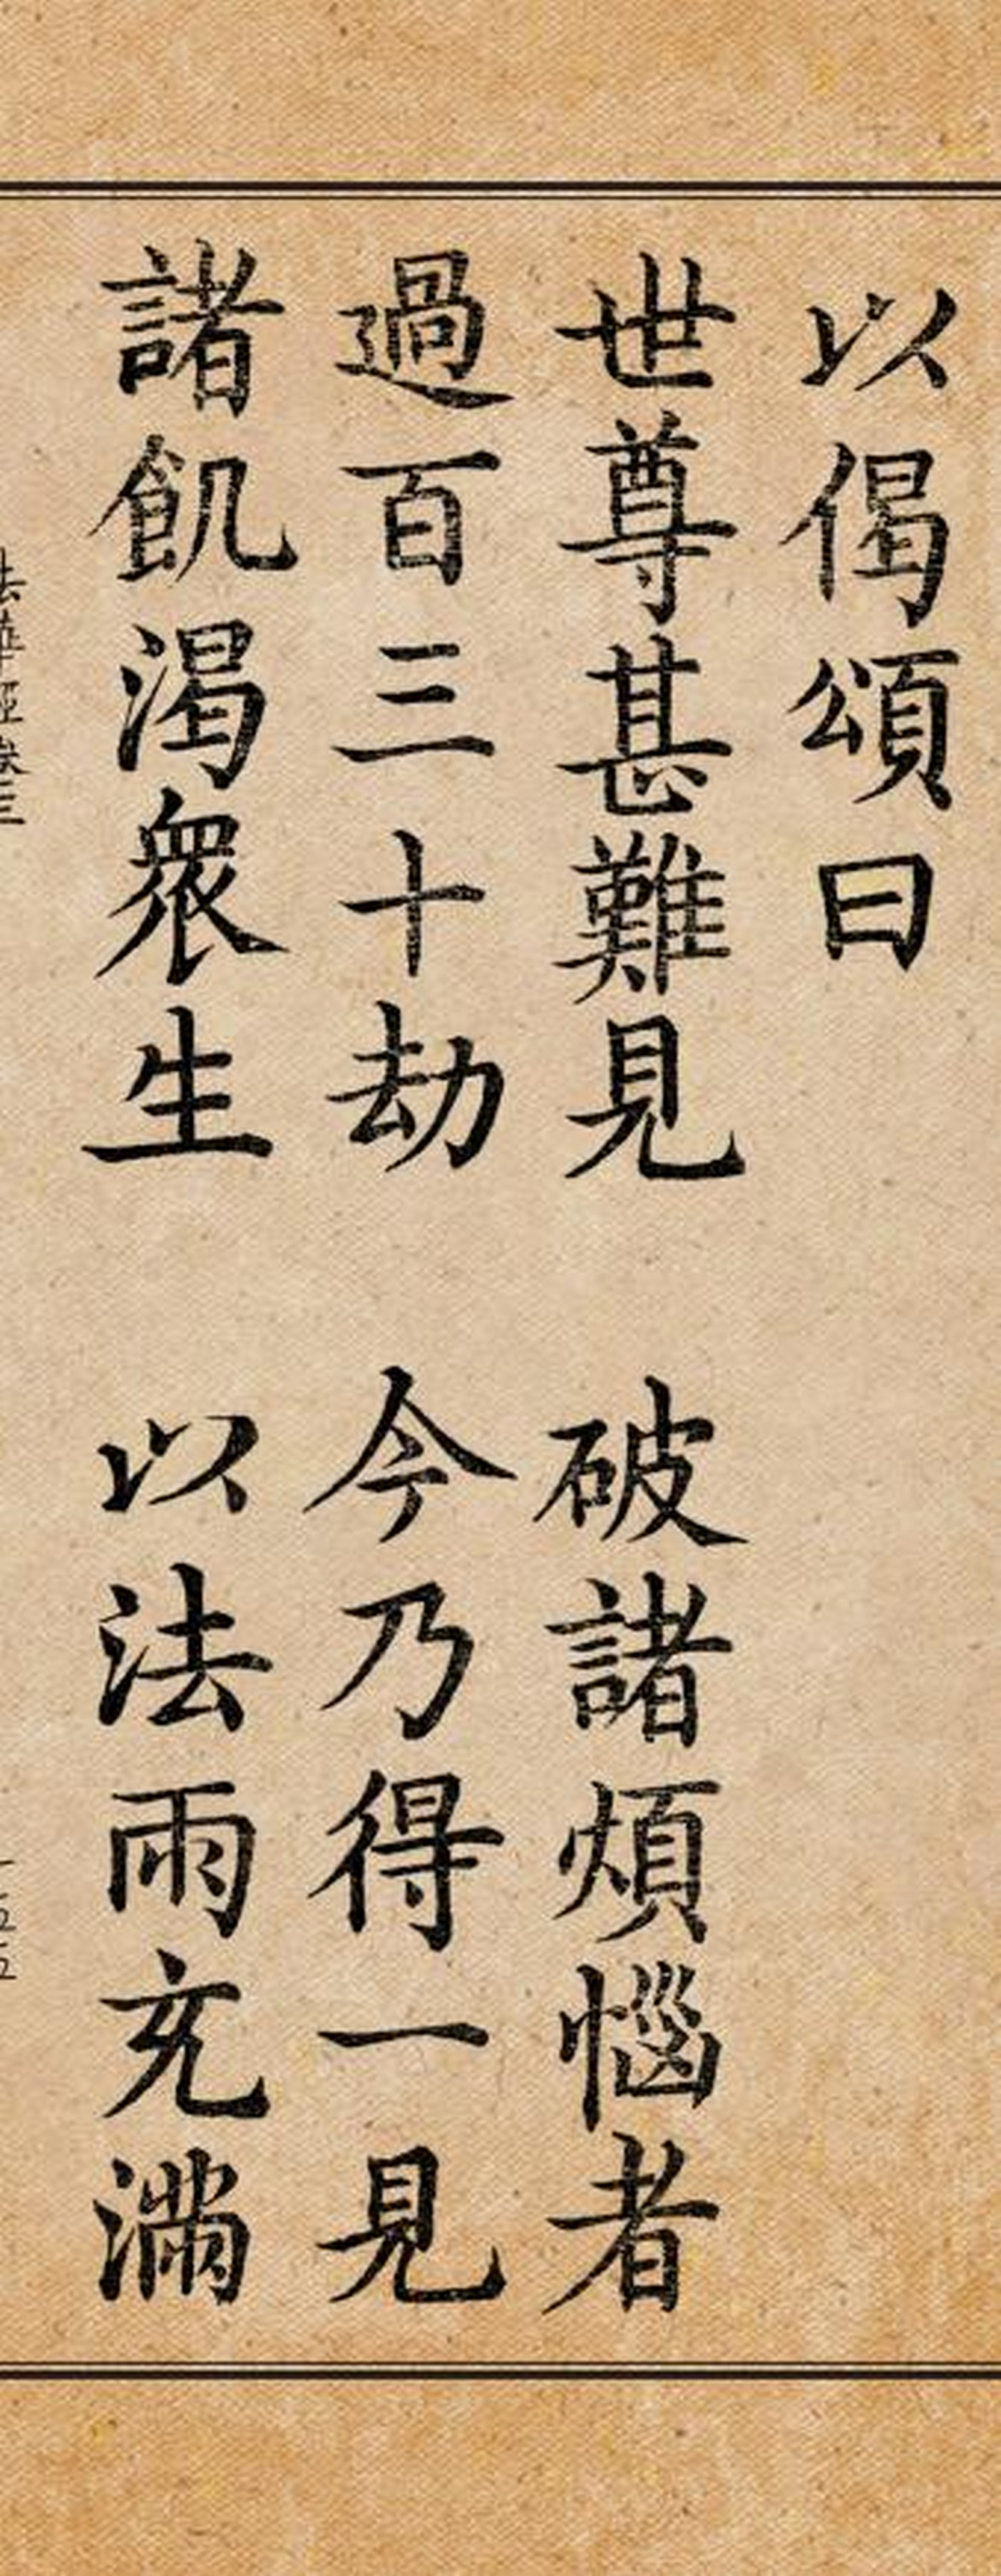 以偈頌曰
世尊甚難見　破諸煩惱者
過百三十劫　今乃得一見
諸飢渴衆生　以法雨充滿
法華經卷三　一五五